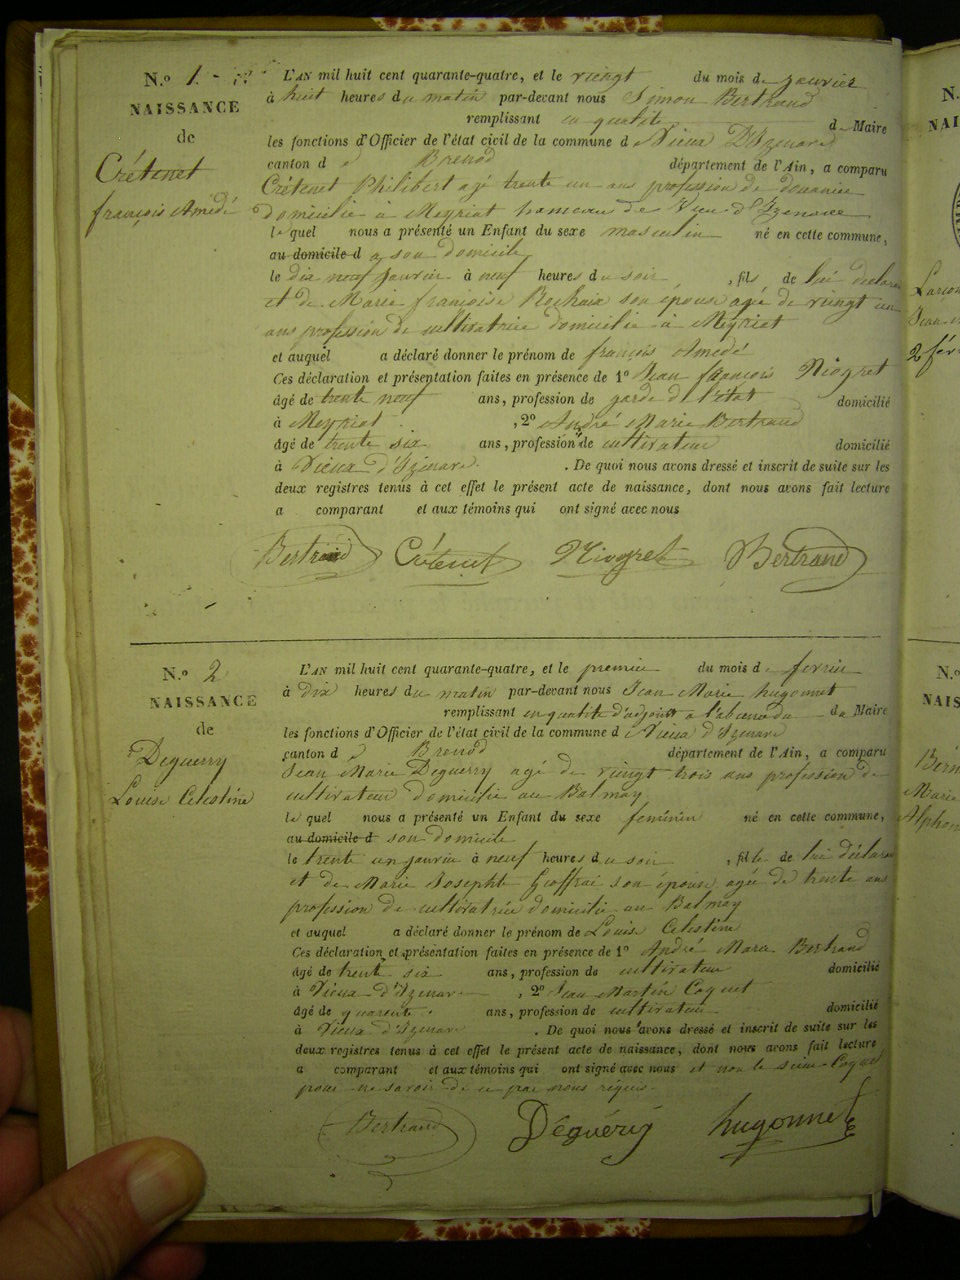 N.o 1
NAISSANCE
de
Crétenet
françois Amédé
L'AN mil huit cent quarante-quatre, et le vingt du mois de janvier
à huit heures du matin par-devant nous Simon Bertrand
remplissant en qualité de Maire
les fonctions d'Officier de l'état civil de la commune d Vieux D'Izenave
canton d e Brenod département de l'Ain, a comparu
Crétenet Philibert agé trente un ans profession de douanier
domicilié à Meyriat hameau de Vieu d'Izenave
le quel nous a présenté un Enfant du sexe masculin né en cette commune,
au domicile d a son domicile
le dix neuf janvier à neuf heures du soir , fils de lui déclarant
et de Marie françoise son épouse agé de vingt un
ans profession de cultivatrice domicilié à Meyriat
et auquel a déclaré donner le prénom de françois Amédé
Ces déclaration et présentation faites en présence de 1o Jean françois Niogret
âgé de trente neuf ans, profession de garde de l'état domicilié
à Meyriat , 2o André Marie Bertrand
âgé de trente six ans, profession de cultivateur domicilié
à Vieux d'Izenave . De quoi nous avons dressé et inscrit de suite sur les
deux registres tenus à cet effet le présent acte de naissance, dont nous avons fait lecture
a comparant et aux témoins qui ont signé avec nous
Bertrand Crétenet Niogret Bertrand
N.o 2
NAISSANCE
de
Deguerry
Louise Celestine
L'AN mil huit cent quarante-quatre, et le premier du mois de fevrier
à dix heures du matin par-devant nous Jean Marie hugonnet
remplissant en qualité d'adjoint a l'absence du de Maire
les fonctions d'Officier de l'état civil de la commune d Vieux d'Izenave
canton d e Brenod département de l'Ain, a comparu
Jean Marie Deguerry agé de vingt trois ans profession de
cultivateur domicilié au Balmay
le quel nous a présenté un Enfant du sexe feminin né en cette commune,
au domicile d son domicile
le trente un janvier à neuf heures du soir , fille de lui déclarant
et de Marie Josephte Geoffrai son épouse agée de trente ans
profession de cultivatrice domicilié au Balmay
et auquel a déclaré donner le prénom de Louise Celestine
Ces déclaration et présentation faites en présence de 1o André Marie Bertrand
âgé de trente six ans, profession de cultivateur domicilié
à Vieux d'Izenave , 2o Jean Martin Coquet
âgé de quarente ans, profession de cultivateur domicilié
à Vieux d'Izenave . De quoi nous avons dressé et inscrit de suite sur les
deux registres tenus à cet effet le présent acte de naissance, dont nous avons fait lecture
a comparant et aux témoins qui ont signé avec nous et non le sieur Coquet
pour ne savoir de ce par nous réquis.
Bertrand Déguéry hugonnet
2 fév